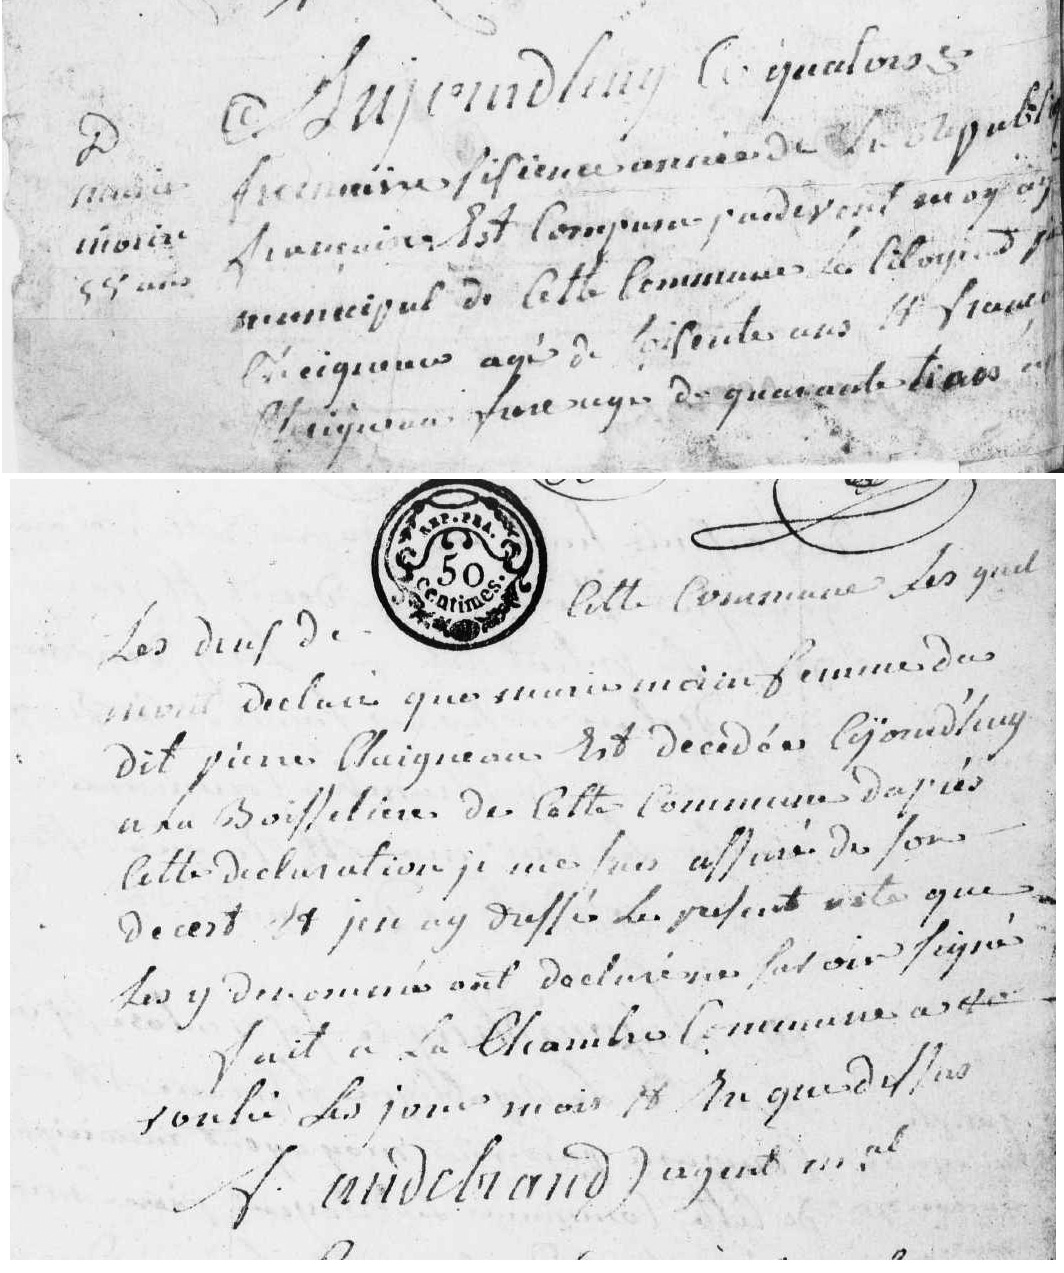 D
marie
morin
55 ans
@ Aujourdhuy Le quatorze
frremaire sisieme année de la Republi
françaisse Est Comparu pardevent moy ag
municipal de Cette Commune les Citoyiens p
Cheigneau agé de soisente ans Et franco
Cheigneau frere agé de quarante trois a
REP. FRA.
50
centimes.
Les deus de Cette Commune Les quel
mont declaré que marie morin femme du
dit pierre Chaigneau Est decedée Cejourdhuy
a La Boisseliere de Cette Commune dapres
Cette declaration je me suis assuré de son
decest Et jen ay dressé Le present acte que
Les y denomé ont declaré ne savoir signé
fait a La Chambre Commune a st
soulié Les jour mois Et An que dessus
f. audebrand agent m.al